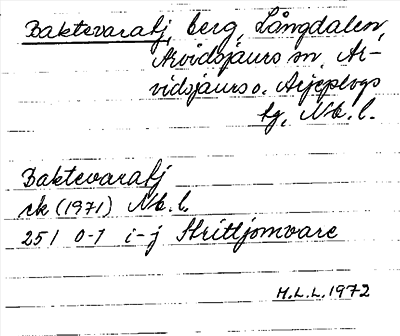 Baktevaratj, berg, Långdalen,
Arvidsjaurs sn, Ar-
vidsjaurs o. Arjeplogs
tg, Nb. l.
Baktevaratj
ek (1971) Nb. l.
25 I 0-1 i-j Strittjomvare
H.L.L. 1972